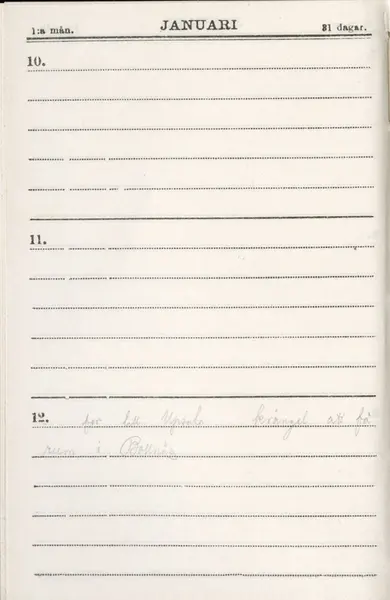 1:a mån. JANUARI 31 dagar.
10.
11.
12. for till Upsala krångel att få
rum i